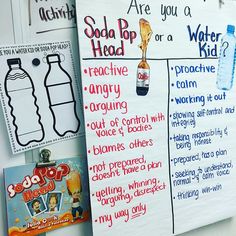 activity
ARE YOU A WATER KID OR SODA POP HEAD?
Are you a
Soda Pop Head
or a
Water Kid?
• reactive
• angry
• arguing
• out of control with
voice & bodies
• blames others
• not prepared,
doesn't have a plan
• yelling, whining,
arguing, disrespect
• my way only
• proactive
• calm
• working it out
• showing self-control and
integrity
• taking responsibility &
being honest
• prepared, has a plan
• seeking to understand,
normal & calm voice
• thinking win-win
Soda Pop
Head